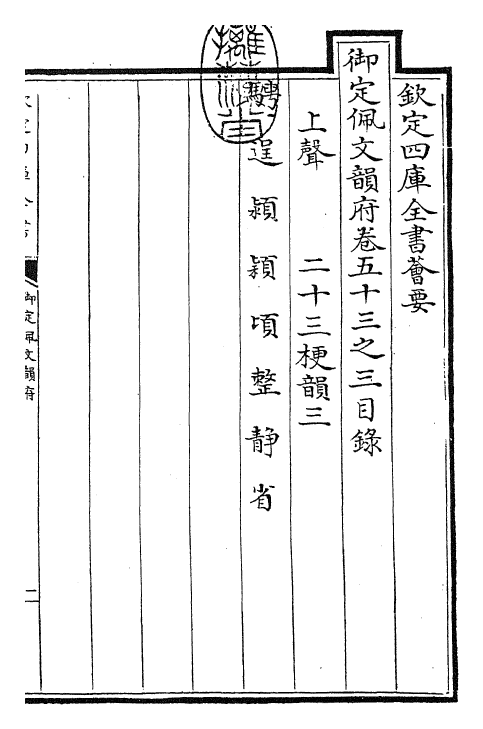 欽定四庫全書薈要
御定佩文韻府卷五十三之三目錄
上聲　二十三梗韻三
騁逞潁穎頃整靜省
御定佩文韻府